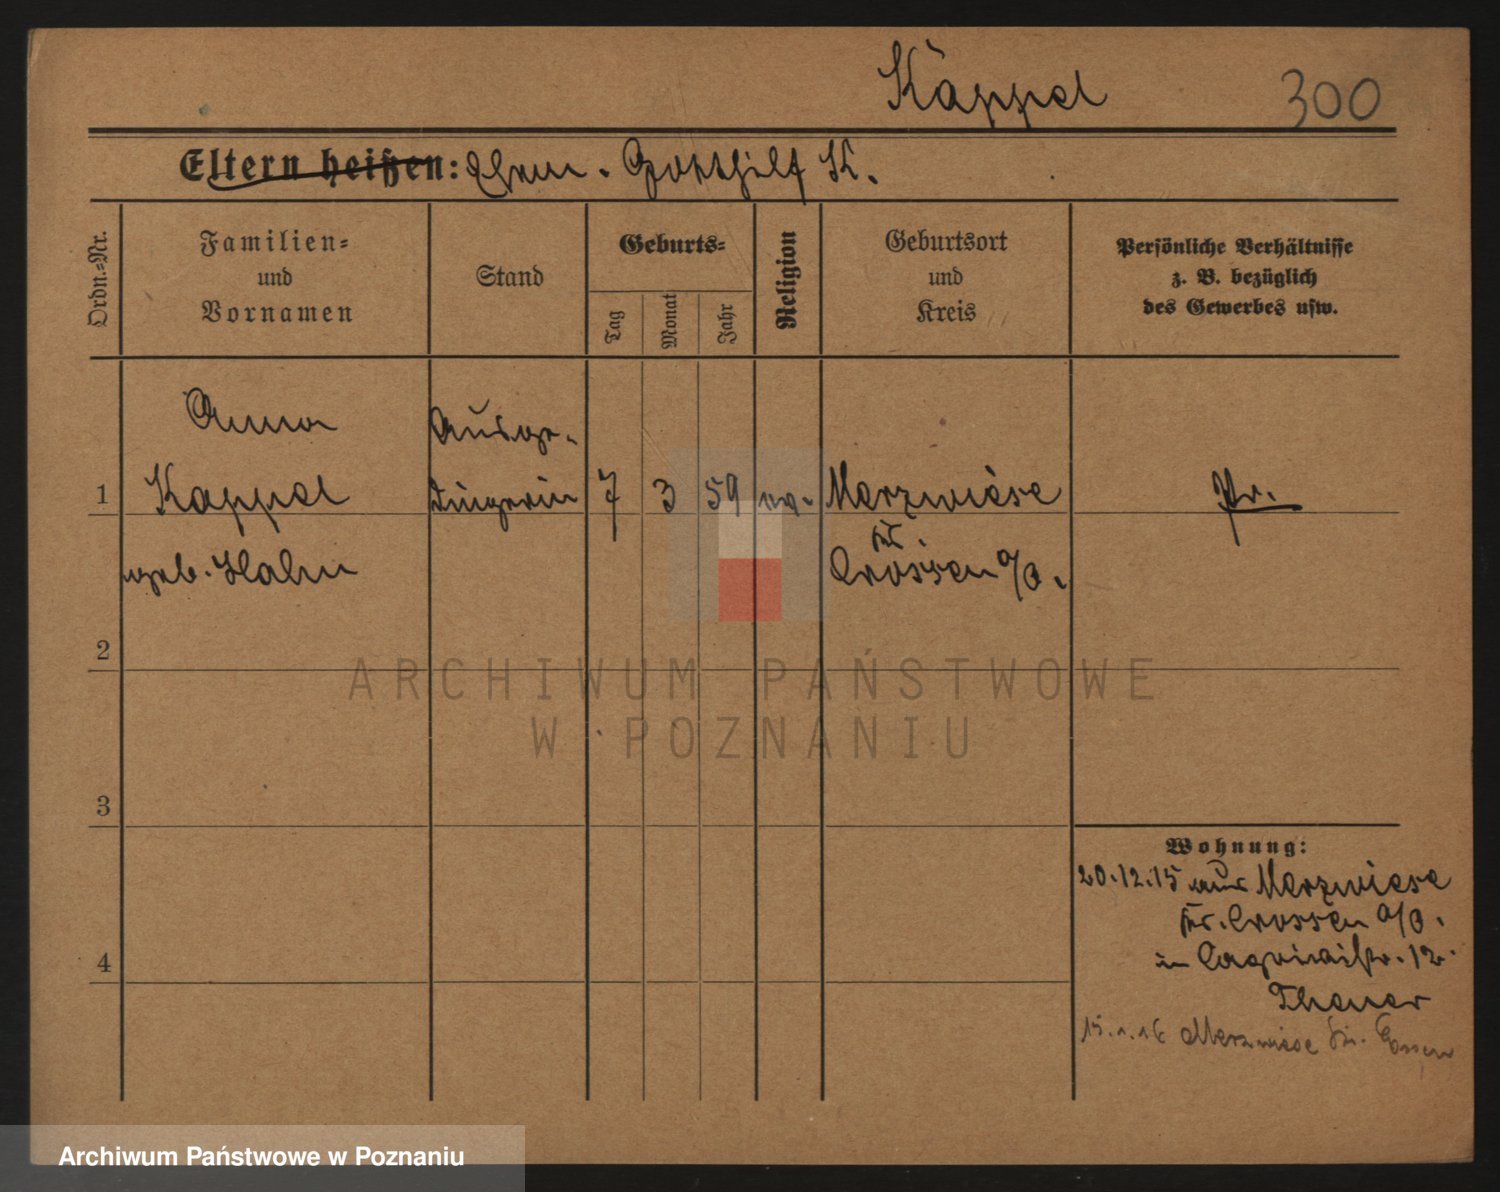 Käppel 300
Eltern heißen: Ehem. Gotthilf K.
Ordn.=Nr.
Familien=
und
Vornamen
Stand
Geburts=
Tag
Monat
Jahr
Religion
Geburtsort
und
Kreis
Persönliche Verhältnisse
z. B. bezüglich
des Gewerbes usw.
Anna
Ausge-
1 Kappel
dingerin 7 3 59 ev. Merzwiese
Pr.
Kr.
geb. Hahn
Crossen a/O.
2
3
4
Wohnung:
20.12.15 aus Merzwiese
Kr. Crossen a/O.
in 12
15.1.16 Merzwiese Kr.
ARCHIWUM PAŃSTWOWE
W POZNANIU
Archiwum Państwowe w Poznaniu